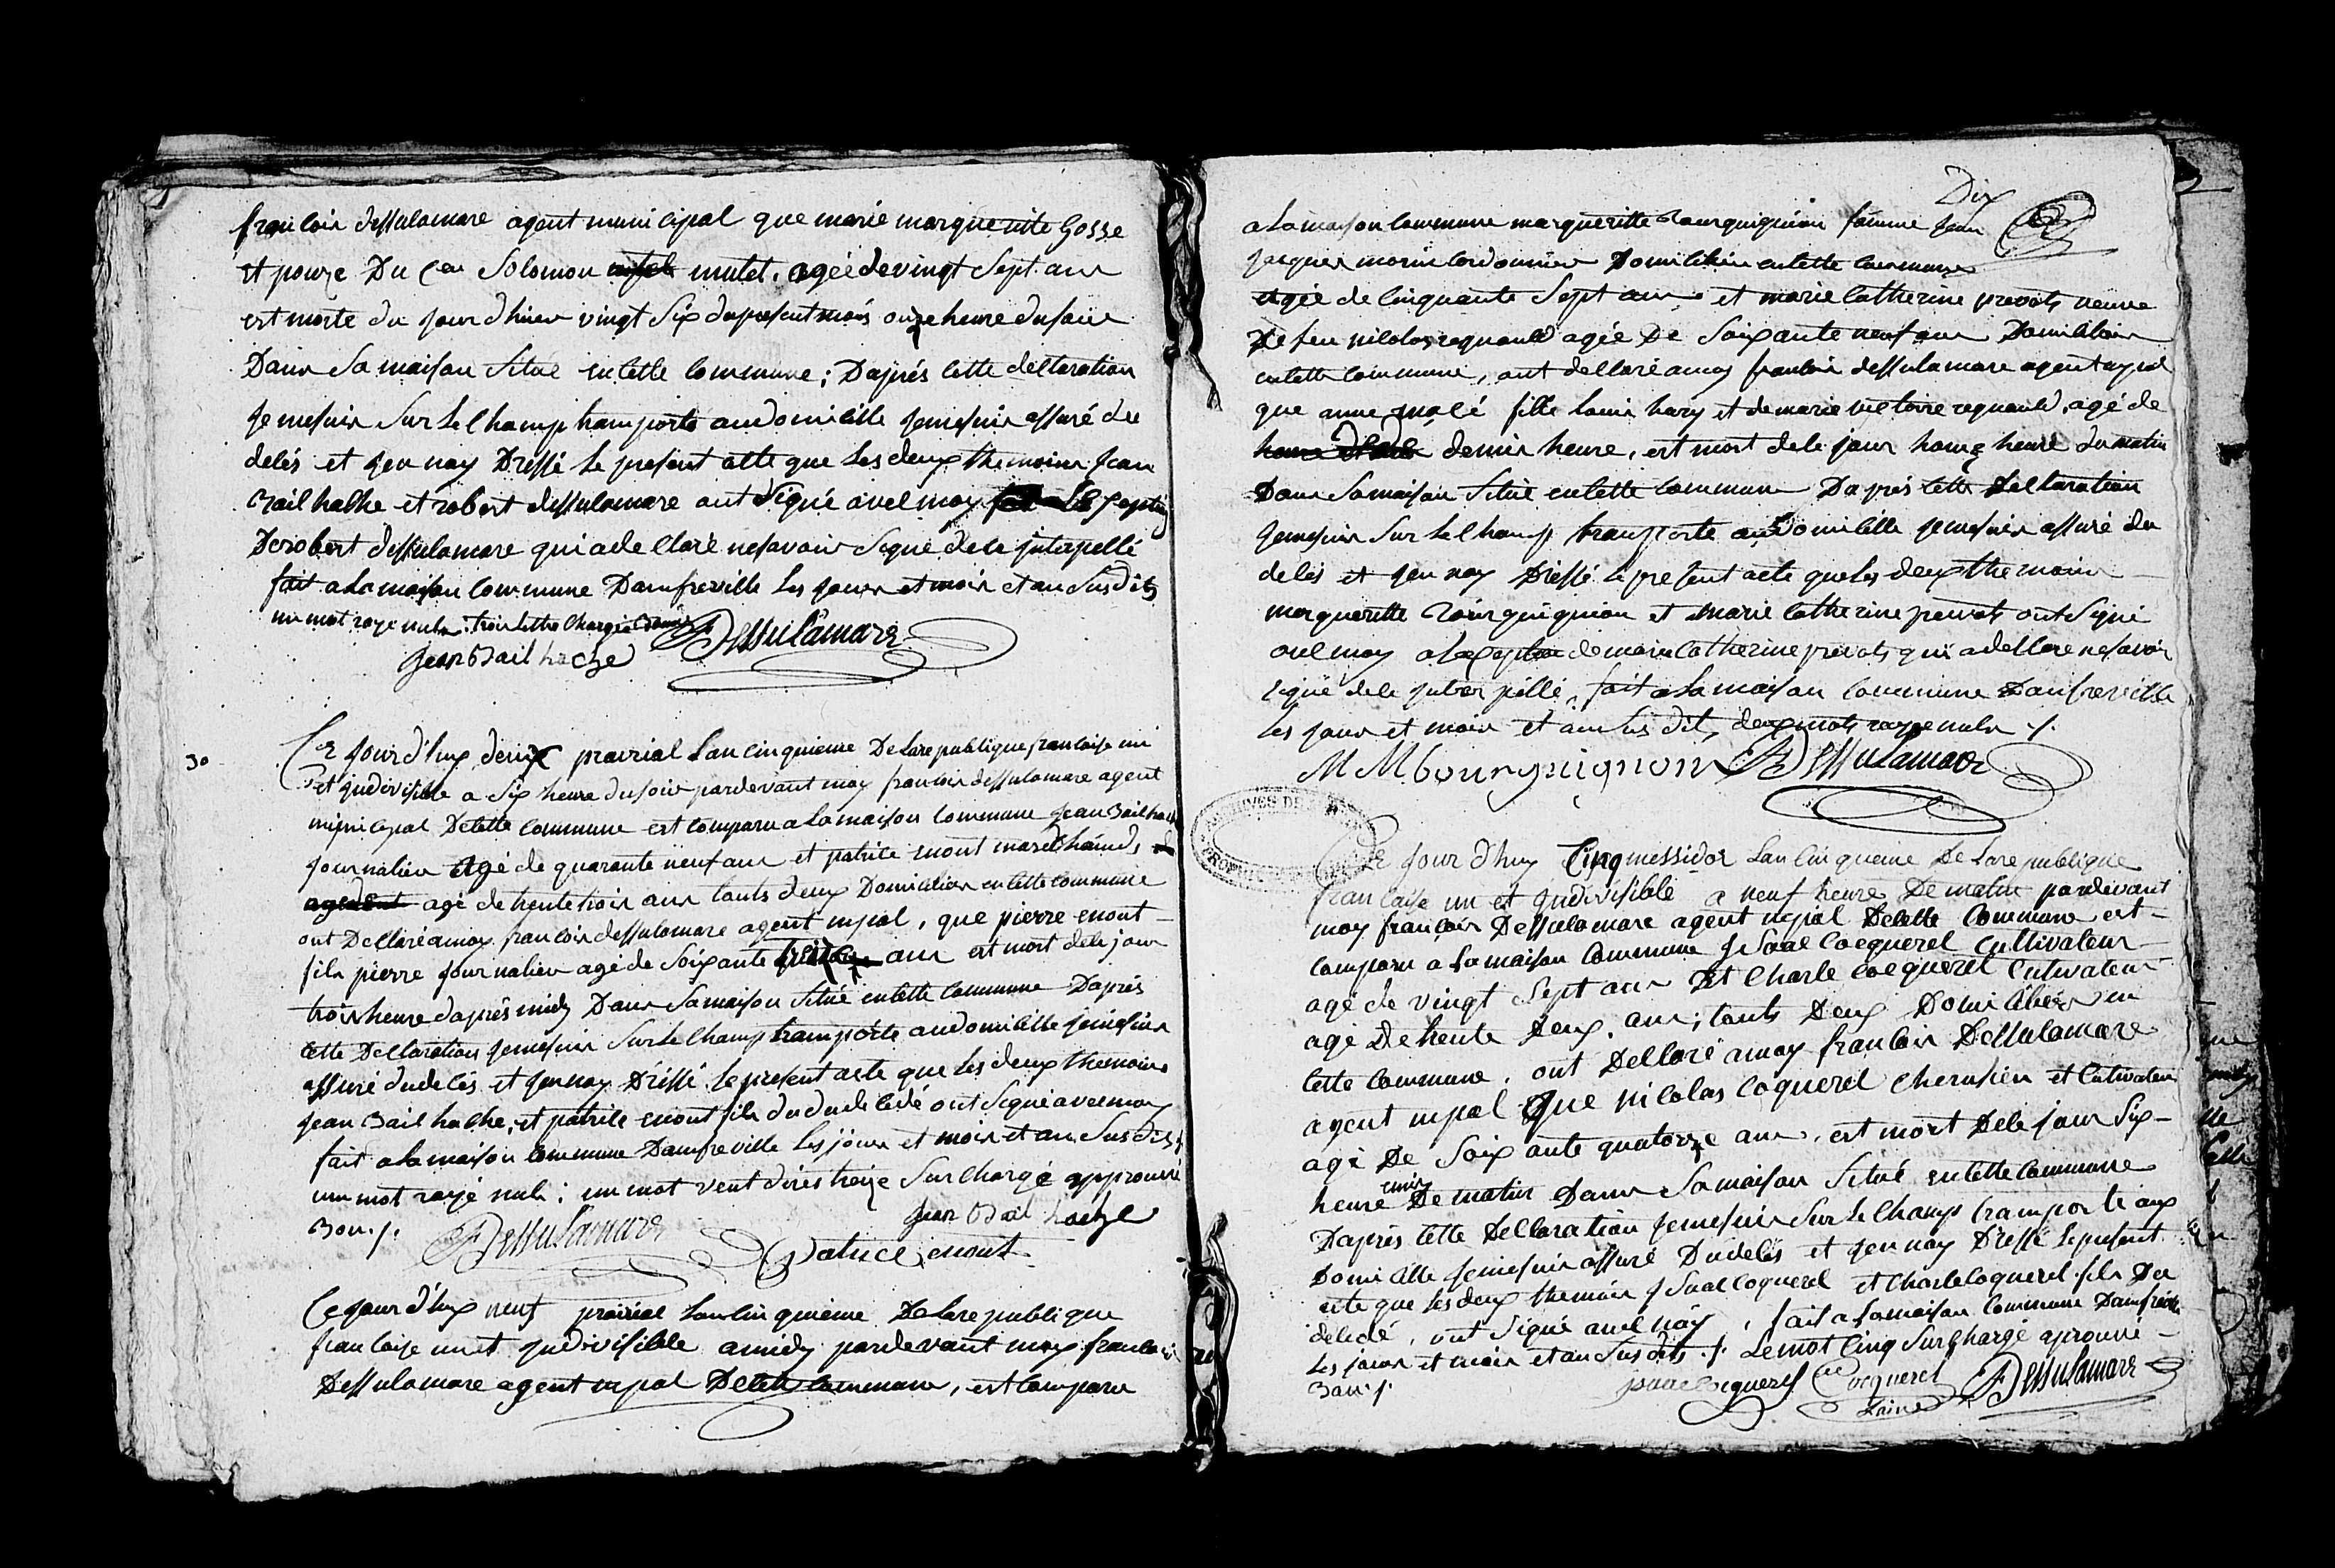 francois dessulamare agent municipal que marie marguerite Gosse
et pouze Du Cen Solomon mulet, agée de vingt Sept ans
est morte du jour dhier vingt Six du present mois onze heure du soir
Dans Sa maison Situé en cette Commune ; D'aprés cette declaration
je me suis Sur le Champ transporté au domicille je me suis assuré du
delés et jen nay Dressé le present acte que les deux themoins jean
Bailhache et robert dessulamare ont Signé avec moy
De robert dessulamare qui a declaré ne savoir Signé de ce interpellé
fait a La maison Commune Damfreville les jours et mois et an Susdits
un mot rayé nul trois lettre Chargée
jean Bail hache Dessulamare
30
Ce jour d'huy deux prairial Lan cinquieme De La republique francaise un
et indivisible a Six heure du soir pardevant moy francois dessulamare agent
municipal De cette Commune est comparu a La maison Commune jean Bailhache
journalier agé de quarante neuf ans et patrice enout marechand
agé de trente trois ans touts deux Domicilies en cette commune
ont Declaré a moy francois dessulamare agent mpal, que pierre enout
fils pierre journalier agé de Soixante treize ans est mort de ce jour
trois heure d'aprés midy Dans Sa maison Situé en cette Commune D'aprés
cette Declaration je me suis Sur le Champ transporté au domicille je me suis
assuré du delés et jen nay Dréssé le present acte que les deux themoins
jean Bailhache, et patrice enout fils du dudecedé ont Signé avec moy
fait a La maison Commune Damfreville les jours et mois et an Susdits
un mot rayé nul ; un mot vent dires treize Surchargé approuvé
Bon ./. Dessulamare jean Bail hache
Patrice enout
Ce jour d'huy neuf prairial Lan cinquieme De La republique
francaise un et indivisible a midy pardevant moy francois
Dessulamare agent mpal De cette Commune, est comparu
Dix
a La maison Commune margueritte Bourguignion famme jean
jacques morin Cordonnier Domicilies en cette Commune
agée de Cinquante Sept ans et marie Catherine prevots veuve
De feu nicolas regnauld agée De Soixante neuf ans Domicilies
en cette Commune, ont declaré a moy francois dessulamare agent mpal
que anne fille Louis hary et de marie victoire regnauld, agé de
demie heure, est mort de ce jour honze heure du matin
Dans Sa maison Situé en cette Commune D'aprés cette Declaration
je me suis Sur le Champ transporté au Domicille je me suis assuré du
delés et jen nay Dressé le present acte que les deux themoins
marguerette Bourguignion et marie Catherine prevots ont Signé
avec moy a lexeption de marie Catherine prevots qui a declaré ne savoir
signé de ce interpellé, fait a La maison Commune Damfreville
les jours et mois et an Susdit, deux mots rayée nuls ./.
M M bourguignon Dessulamare
Ce jour d'huy Cinq messidor Lan cinquieme De La republique
francaise un et indivisible a neuf heure De matin pardevant
moy francois Dessulamare agent mpal De cette Commune est
comparu a La maison Commune jsaac Cocquerel Cultivateur
agé de vingt Sept ans Et Charle Cocquerel Cultivateur
agé De trente Deux ans ; touts Deux Domicilies en
Cette Commune, ont Declaré a moy francois Dessulamare
agent mpal que nicolas Coquerel Cherusien et Cultivateur
agé De Soixante quatorze ans, est mort De ce jour Six
heure De matin Dans Sa maison Situé en cette Commune
D'aprés cette Declaration je me suis Sur le Champ transporté aux
Domicille je me suis assuré Du delés et jen nay Dressé le present
acte que les deux themoins jsaac Coquerel et Charle Coquerel fils Du
decedé, ont Signé avec moy, fait a La maison Commune Damfreville
les jours et mois et an Susdits ./. Le mot Cinq Surchargé aprouvé
Bon ./. jsaac Cocquerel Cocquerel Dessulamare
Laine